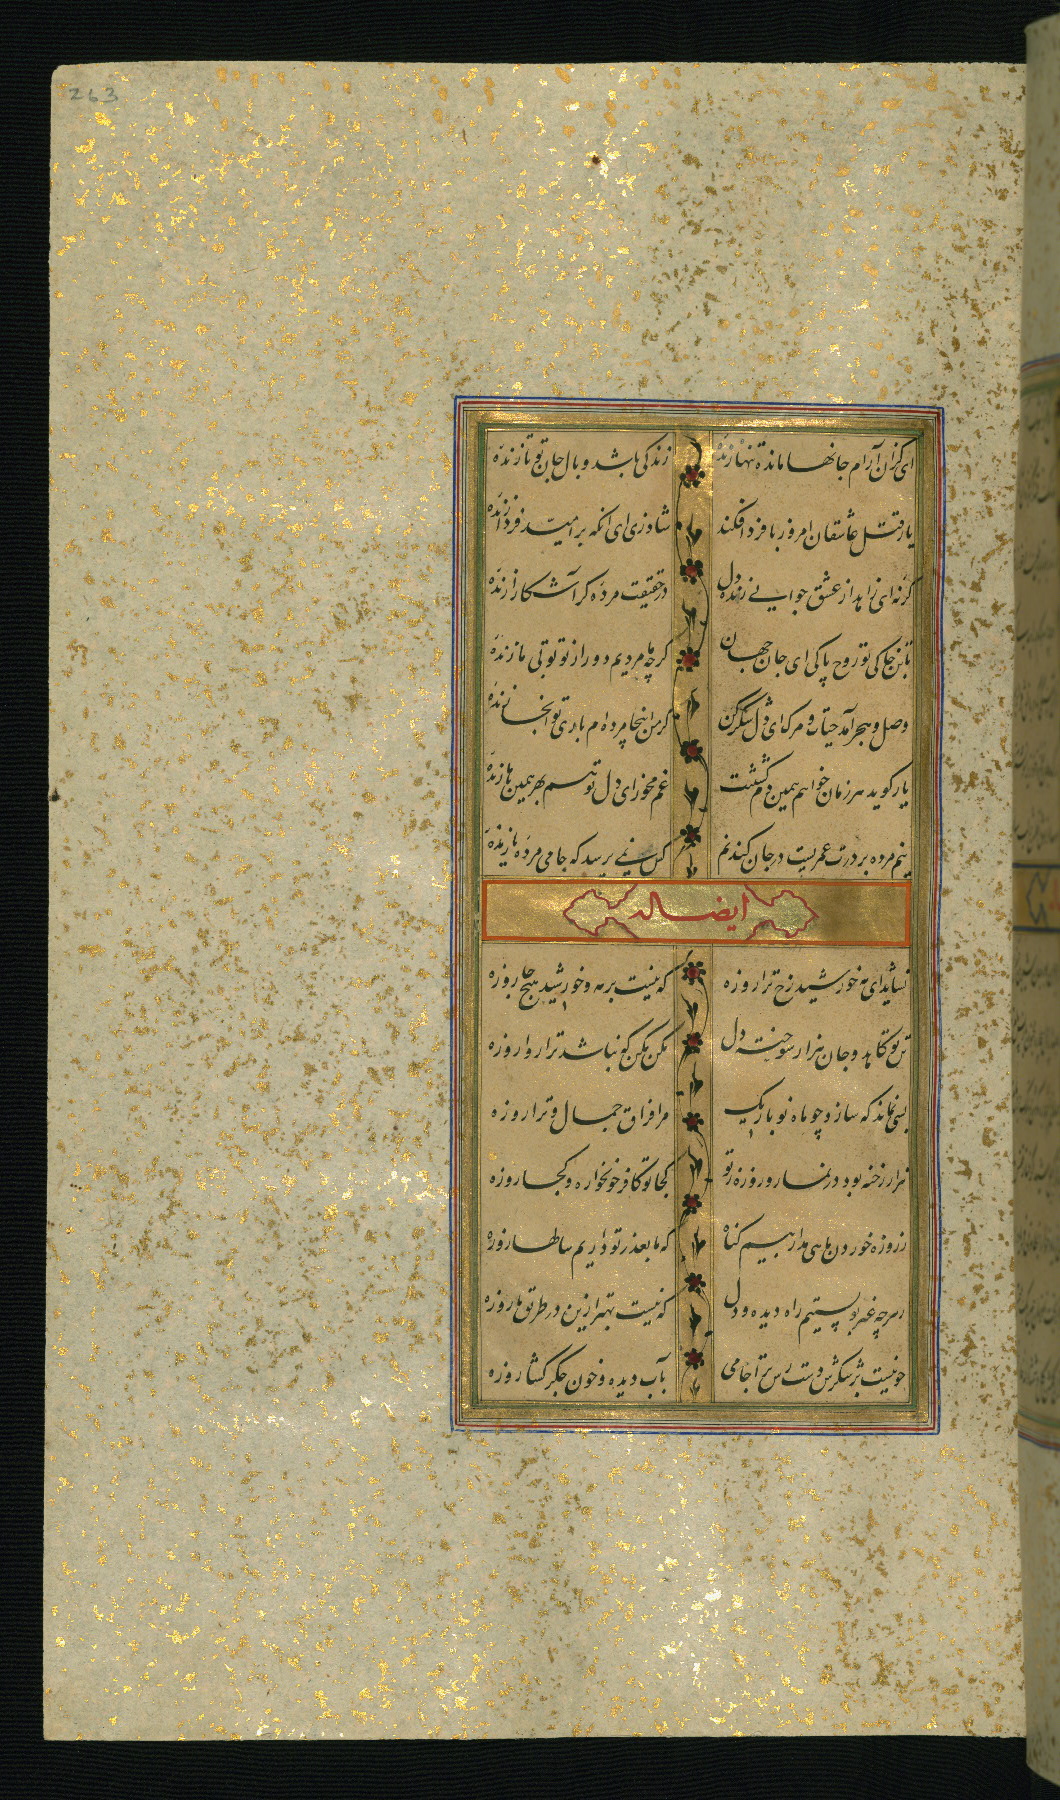 263
ای کزان آرام جانها مانده تنها زنده
زندگی باشد وبال جان تو تا زنده
یار قتل عاشقان امروز با فردا فکند
شاد زی ای انکه بر امید فردا زنده
گرنه ای زاهد از عشق جوانی زنده دل
در حقیقت مرده گر آشکارا زنده
تابتن خاکی تو روح پاکی ای جان جهان
گرچه ما مردیم دور از تو تو بی ما زنده
وصل و هجر آمد حیات و مرک ای دل شکر کن
گر من اینجا مرده ام باری تو آنجا زنده
یار گوید هر زمان خواهم همین دم کشتنت
غم مخور ای دل تو هم بهر همین ها زنده
نیم مرده بر درت عمریست در جان کندنم
کس نمی پرسد که جامی مرده یا زنده
ایضا له
نساید ای مه خورشید رخ ترا روزه
که نیست بر مه و خورشید هیچ جا روزه
تن تو کاهد و جان هزار سوخته دل
مکن مکن که نباشد ترا روا روزه
بسی نماند که سازد چو ماه نو باریک
مرا فراق جمال و ترا روزه
هزار رخنه بود در نماز و روزه ز تو
کجا تو کافر خونخواره و کجا روزه
ز روزه خوردن ماهی مدار بیم گناه
که ما بعذر تو داریم سالها روزه
ز هر چه غیر تو بستیم راه دیده و دل
که نیست بهتر ازین در طریق ما روزه
چو نیست بر شکرش دست رس ترا جامی
بآب دیده و خون جگر گشا روزه